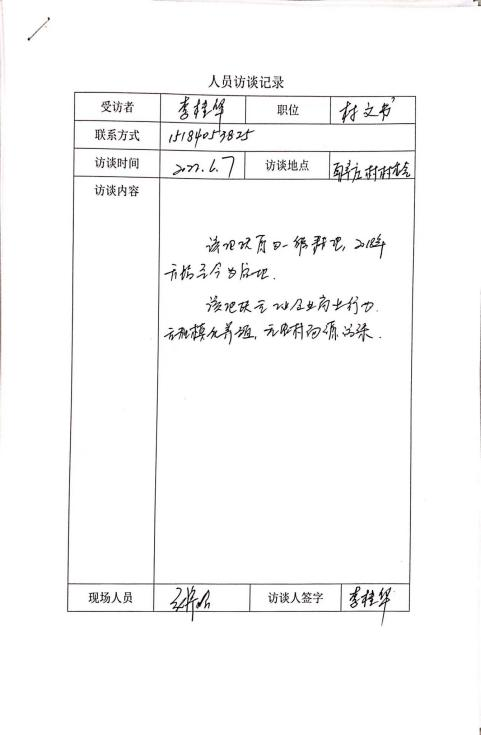 人员访谈记录
受访者 李桂华 职位 村文书
联系方式 15184053825
访谈时间 2022.6.7 访谈地点 村村委会
访谈内容
该地块原为一般耕地，2018年
开始至今为荒地.
该地块无工业企业商业行为.
无规模化养殖，无农村面源污染.
现场人员 访谈人签字 李桂华